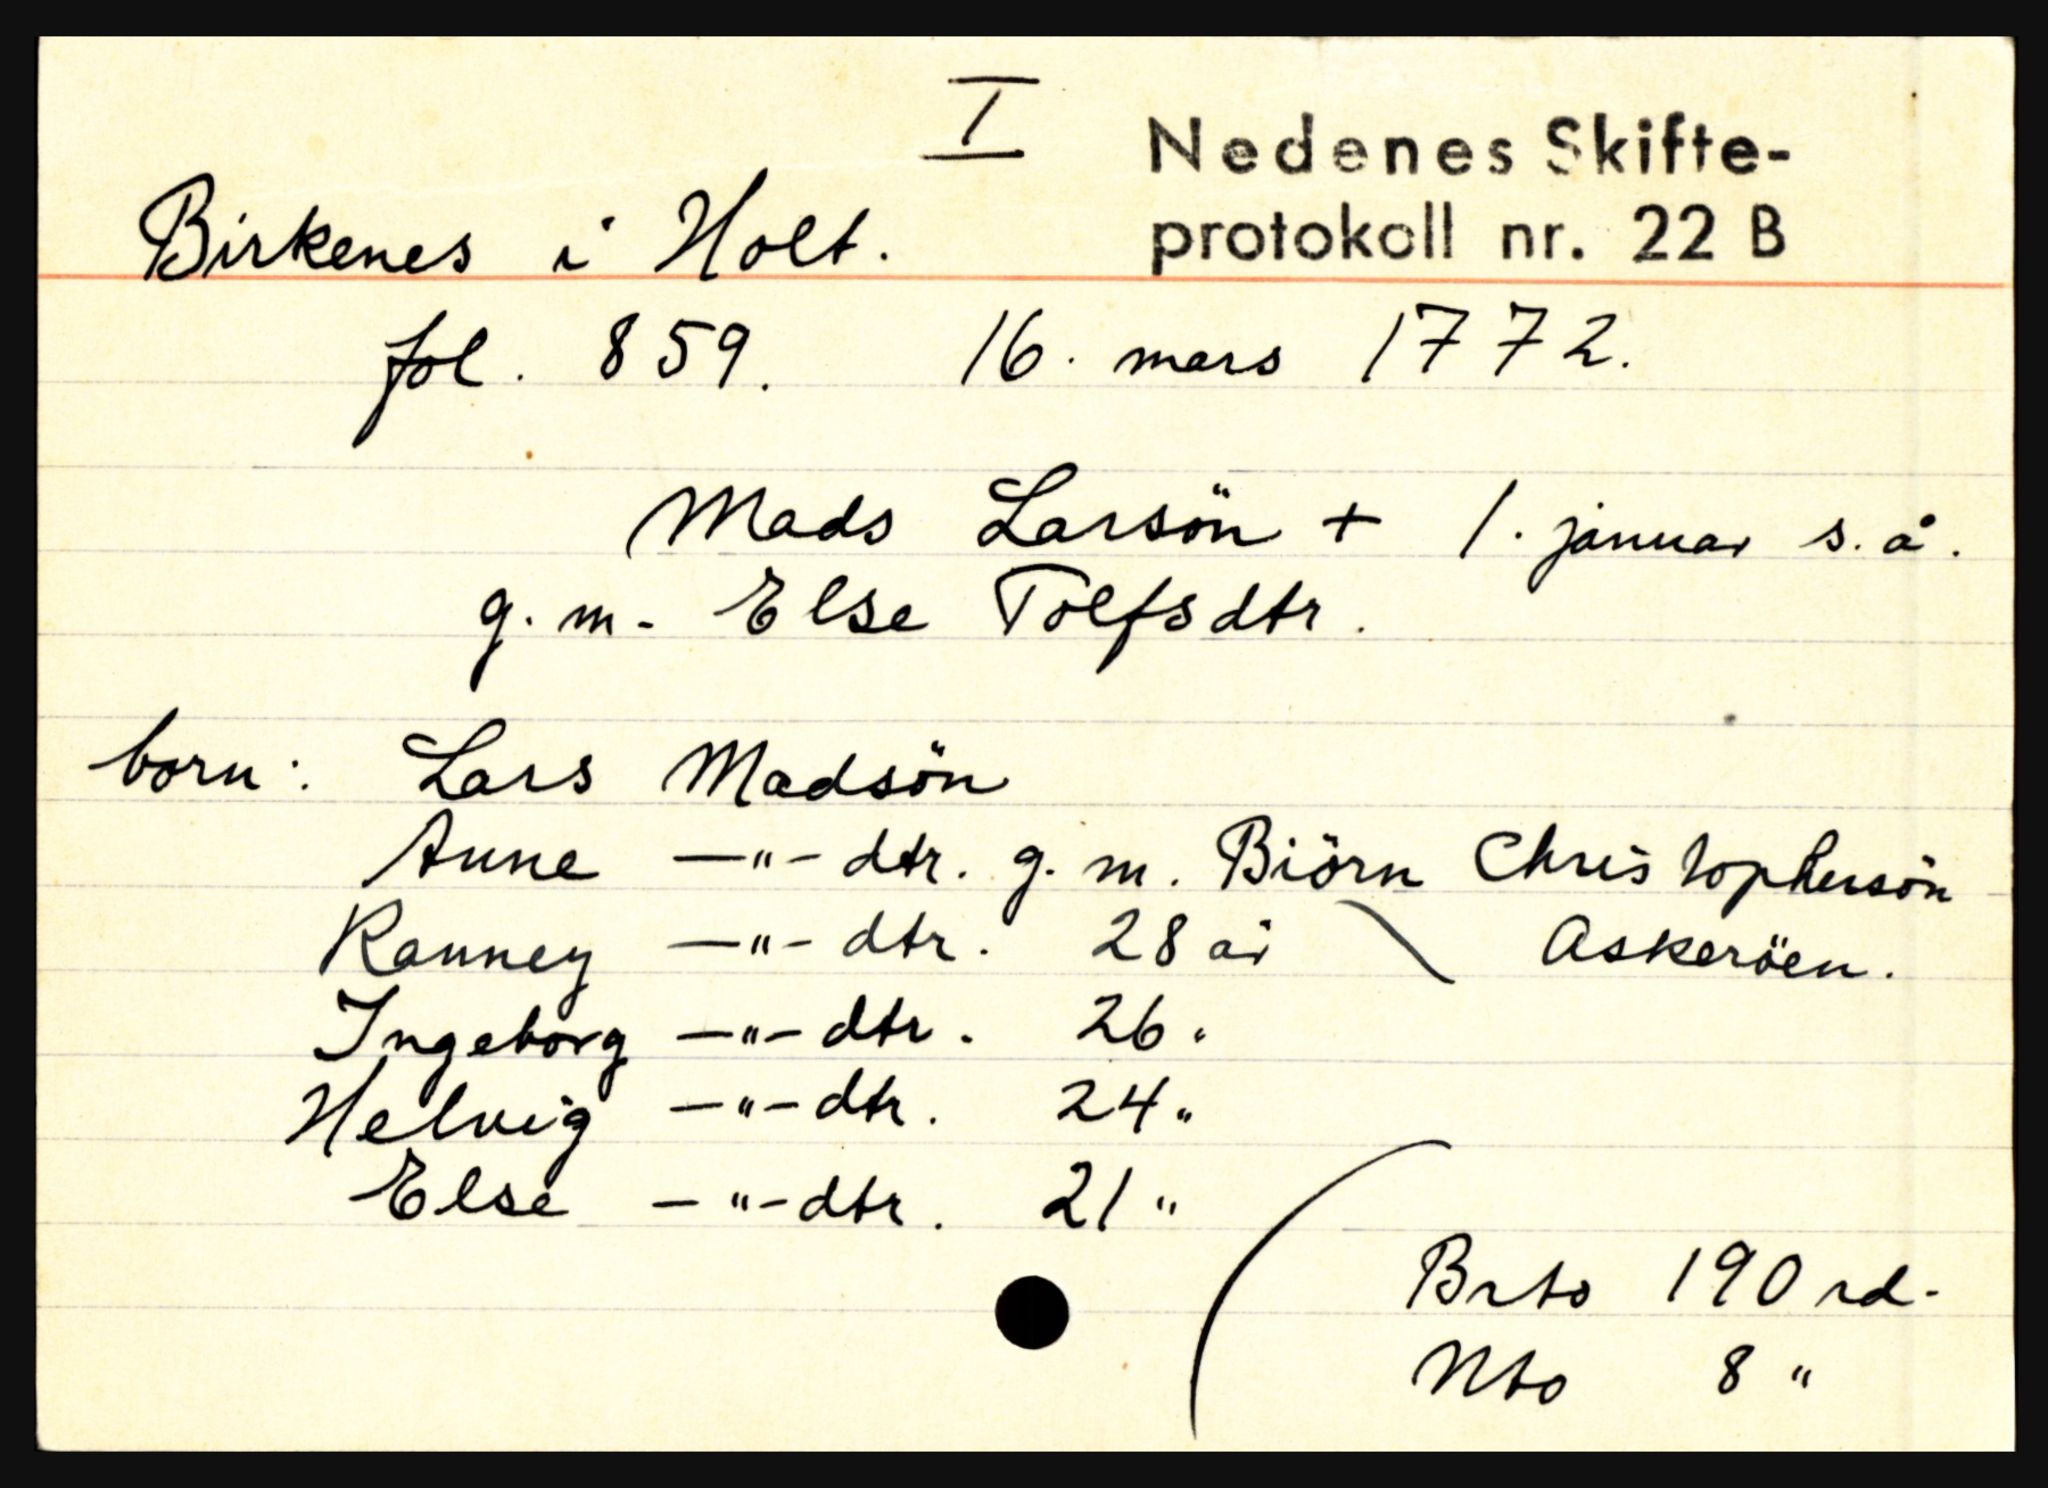 I
Nedenes Skifte-
protokoll nr. 22 B
Birkenes i Holt.
fol. 859. 16. mars 1772.
Mads Larsön + 1. januar s. å.
g. m. Else Tolfsdtr.
born: Lars Madsön
Anne —"— dtr. g. m. Biörn Christophersön
Ranney —"— dtr. 28 år \ Askeröen.
Ingeborg —"— dtr. 26 "
Helvig —"— dtr. 24 "
Else —"— dtr. 21 "
Brto 190 rd.
Nto 8 "